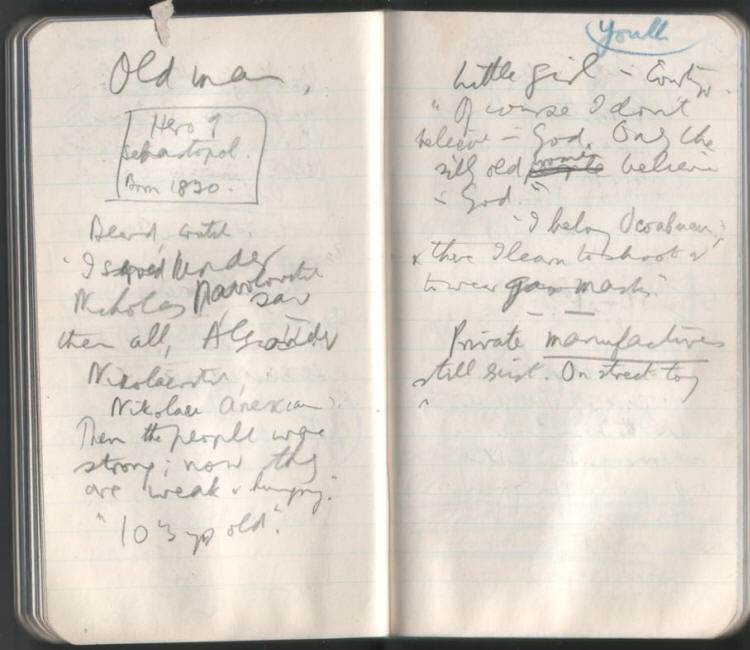 Old man,
Hero of
Sebastopol.
Born 1830.
Beard,
"I served under
Nicholas Pavlovitch saw
them all, Alexander
Nikolaevitch,
Nikolai
Then the people were
strong; now they
are weak & hungry."
"103 yrs old".
Youth
Little girl –
"Of course I don't
believe in God. Only the
silly old believe
in God."
"I belong
there I learn to shoot &
to wear gas mask."
Private manufactures
still exist. On street toy